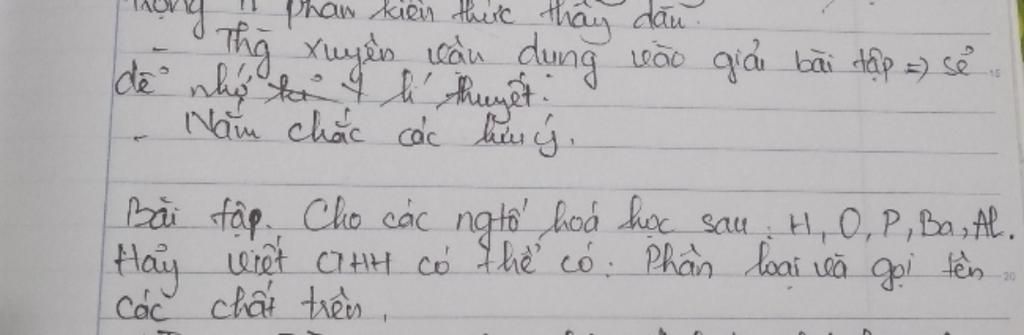 phần kiến thức thầy dẫn.
- Thg xuyên vận dụng vào giải bài tập => sẽ
dễ nhớ lí thuyết.
- Nắm chắc các lưu ý.
Bài tập. Cho các ngtố hoá học sau: H, O, P, Ba, Al.
Hãy viết CTHH có thể có. Phân loại và gọi tên
các chất trên.